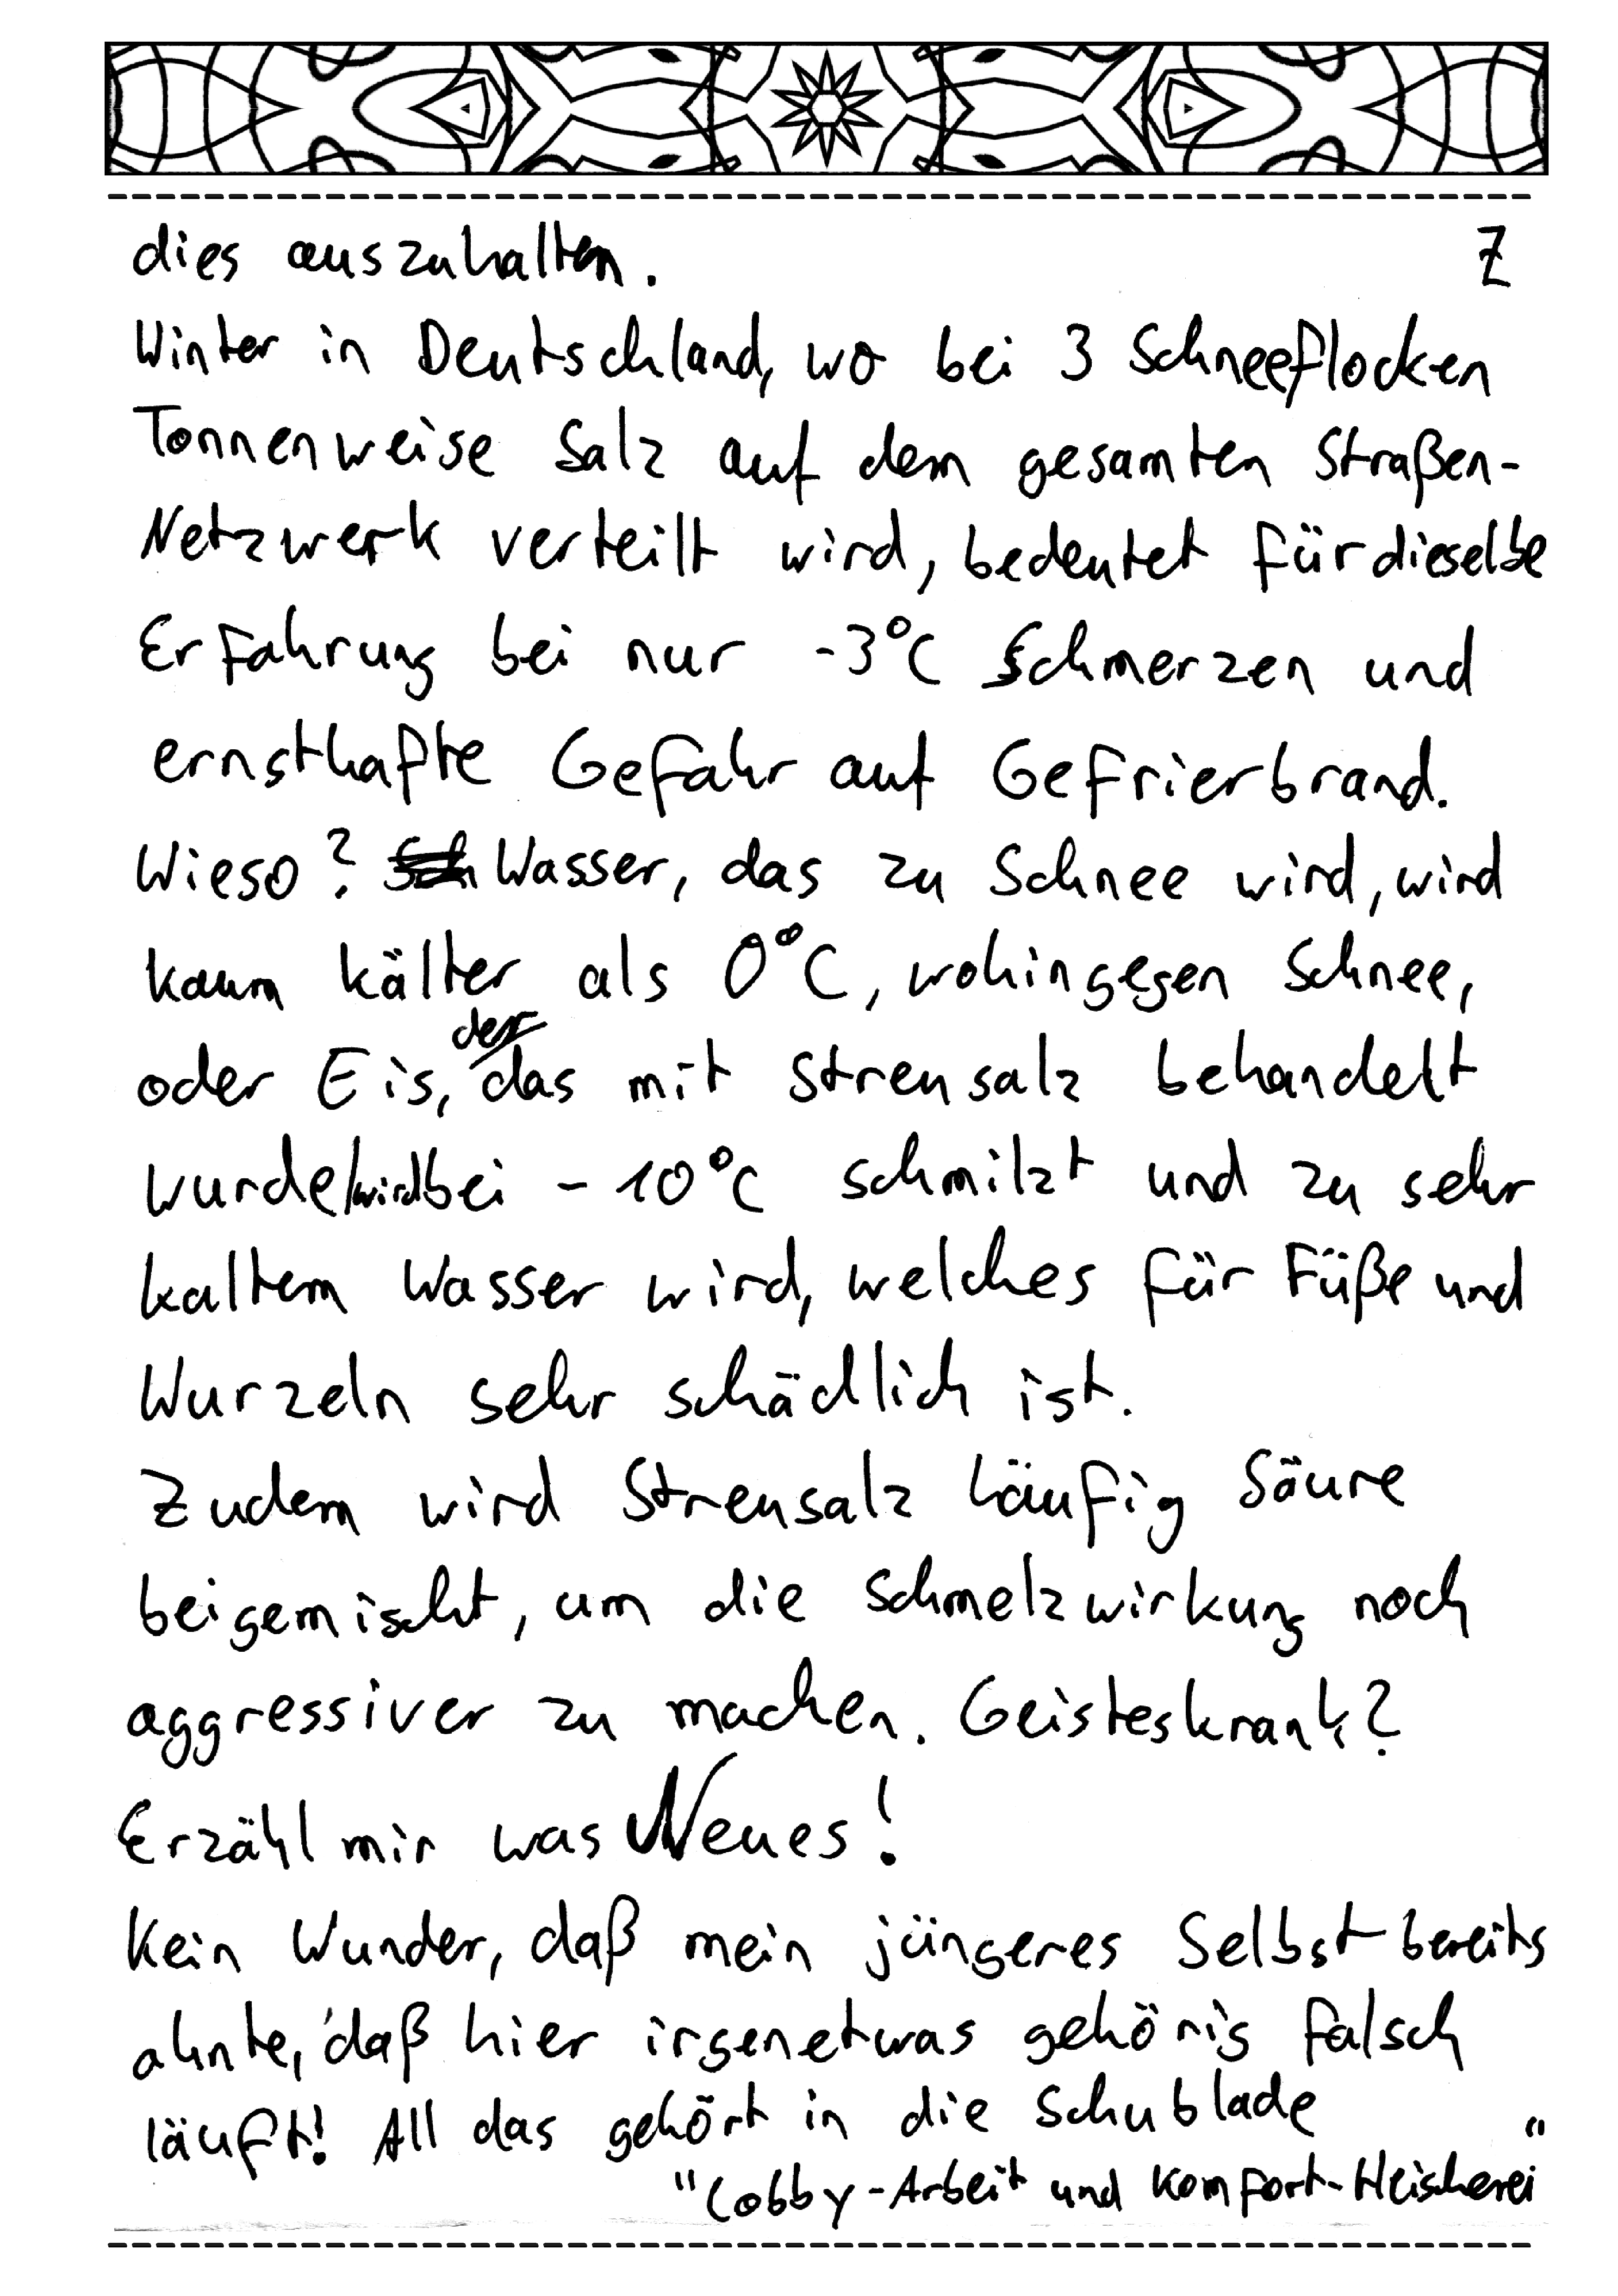 dies auszuhalten. Z
Winter in Deutschland, wo bei 3 Schneeflocken
Tonnenweise Salz auf dem gesamten Straßen-
Netzwerk verteilt wird, bedeutet für dieselbe
Erfahrung bei nur -3°C Schmerzen und
ernsthafte Gefahr auf Gefrierbrand.
Wieso? Sch Wasser, das zu Schnee wird, wird
kaum kälter als 0°C, wohingegen Schnee,
der
oder Eis, das mit Streusalz behandelt
wurde/wird bei -10°C schmilzt und zu sehr
kaltem Wasser wird, welches für Füße und
Wurzeln sehr schädlich ist.
Zudem wird Streusalz häufig Säure
beigemischt, um die Schmelzwirkung noch
aggressiver zu machen. Geisteskrank?
Erzähl mir was Neues!
Kein Wunder, daß mein jüngeres Selbst bereits
ahnte, daß hier irgenetwas gehörig falsch
läuft! All das gehört in die Schublade
"Lobby-Arbeit und Komfort-Heischerei"